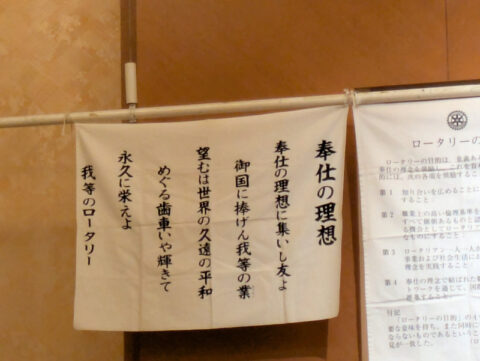 奉仕の理想
奉仕の理想に集いし友よ
御国に捧げん我等の業
望むは世界の久遠の平和
めぐる歯車いや輝きて
永久に栄えよ
我等のロータリー
ロータリーの
ロータリーの目的は、意義ある
奉仕の理念を奨励し、これを育
的には、次の各項を奨励するこ
第1 知り合いを広めることに
すること;
第2 職業上の高い倫理基準を
すべて価値あるものと認
る機会としてロータリア
なものにすること;
第3 ロータリアン一人一人が
事業および社会生活にお
理念を実践すること;
第4 奉仕の理念で結ばれた
トワークを通じて、国際
推進すること。
付記
「ロータリーの目的」の
要な意味を持ち、また同時に
ならないものであるということ
見が一致した。